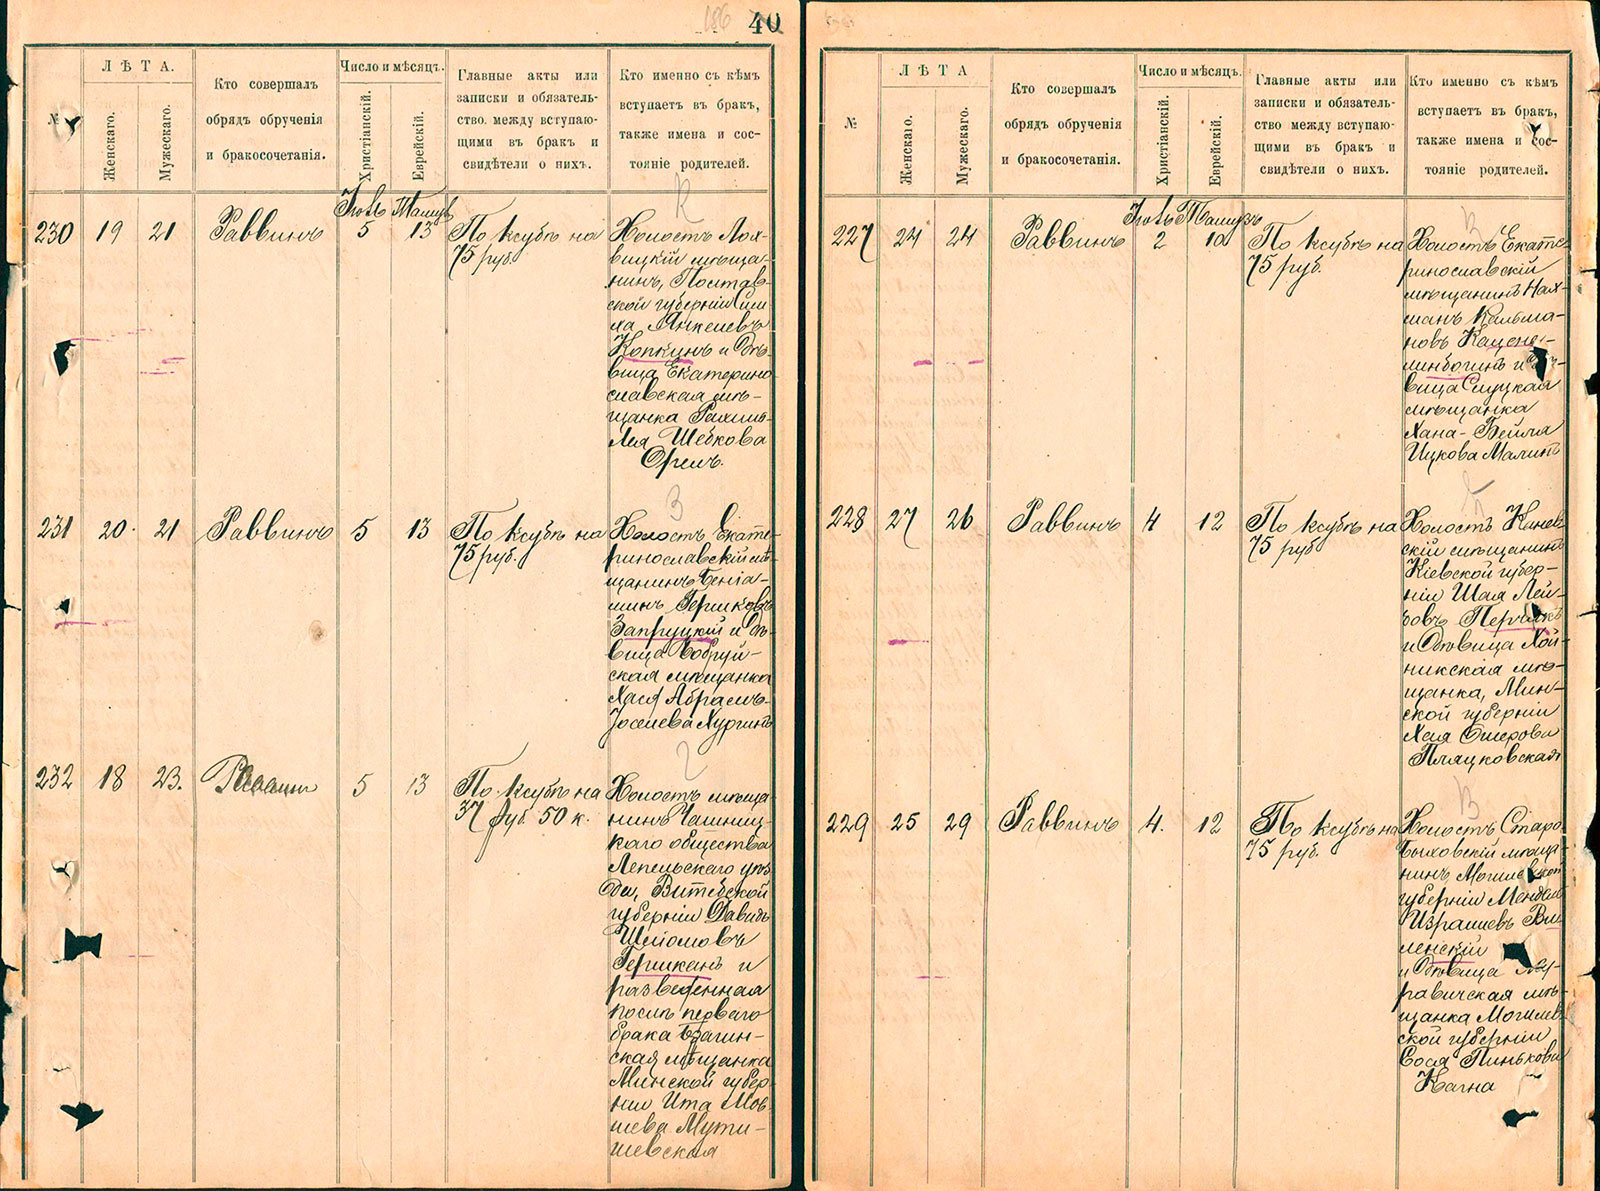 186 40
№
ЛѢТА.
Женскаго.
Мужескаго.
Кто совершалъ
обрядъ обрученія
и бракосочетанія.
Число и мѣсяцъ.
Христіанскій.
Еврейскій.
Главные акты или
записки и обязатель-
ство. между вступаю-
щими въ бракъ и
свидѣтели о нихъ.
Кто именно съ кѣмъ
вступаетъ въ бракъ,
также имена и сос-
тояніе родителей.
К
Іюль Тамузъ
230 19 21 Раввинъ 5 13
По ксубѣ на
75 руб.
Холостъ Лох-
вицкій мѣща-
нинъ, Полтав-
ской губерніи Сим
ха Янкелевъ
Копкинъ и дѣ-
вица Екатерино
славская мѣ-
щанка Рахиль-
Лея Шевкова
Орелъ.
З
231 20. 21 Раввинъ 5 13
По ксубѣ на
75 руб.
Холостъ Екате-
ринославскій мѣ-
щанинъ Беніа-
минъ Гершковъ
Запруцкій и дѣ-
вица Бобруй-
ская мѣщанка
Хася Абрамъ-
Іоселева Хургинъ
2
232 18 23. Раввинъ 5 13
По ксубѣ на
37 руб. 50 к.
Холостъ мѣща-
нинъ Чашниц-
каго общества
Лепельскаго уѣз
да, Витебской
губерніи Давидъ
Шлиомовъ
Гершканъ и
разведенная
послѣ перваго
брака Брагин-
ская мѣщанка
Минской губер
ніи Ита Мов-
шева Мути-
шевская
№
ЛѢТА
Женскаго.
Мужескаго.
Кто совершалъ
обрядъ обрученія
и бракосочетанія.
Число и мѣсяцъ.
Христіанскій.
Еврейскій.
Главные акты или
записки и обязатель-
ство между вступаю-
щими въ бракъ и
свидѣтели о нихъ.
Кто именно съ кѣмъ
вступаетъ въ бракъ,
также имена и сос-
тояніе родителей.
Іюль Тамузъ
227 24 24 Раввинъ 2 10
По ксубѣ на
75 руб.
Холостъ Екате-
ринославскій
мѣщанинъ Нах-
манъ Кальма-
новъ Каценэ-
линбогинъ и дѣ-
вица Слуцкая
мѣщанка
Хана-Бейля
Ицкова Малинъ
228 27 26 Раввинъ 4 12
По ксубѣ на
75 руб
Холостъ Канев
скій мѣщанинъ
Кіевской губер-
ніи Шая Лей-
зовъ Перчикъ
и дѣвица Хой-
никская мѣ-
щанка, Мин-
ской губерніи
Хая Ошерова
Пляцковская
В
229 25 29 Раввинъ 4. 12
По ксубѣ на
75 руб.
Холостъ Старо
Быховскій мѣща-
нинъ Могилевской
губерніи Мендель
Израилевъ Ви-
ленскій
и дѣвица Жу-
равичская мѣ-
щанка Могилев
ской губерніи
Сося Пинькова
Кагна